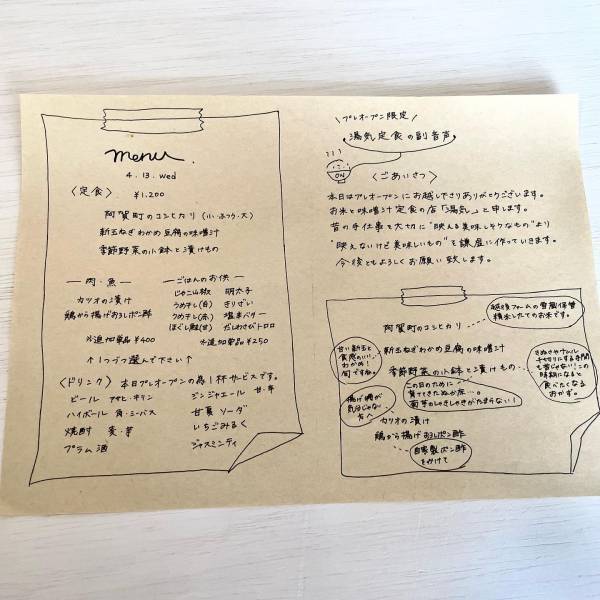 menu
4.13.wed
〈定食〉
¥1,200
阿賀町のコシヒカリ(小・ふつう・大)
新玉ねぎわかめ豆腐の味噌汁
季節野菜の小鉢と漬けもの
ー肉・魚ー
カツオの漬け
鶏から揚げおろしポン酢
※追加単品 ¥400
ーごはんのお供ー
じゃこ山椒 明太子
うめチレ(白) きりざい
うめチレ(赤) 塩辛バター
ほぐし鮭(甘) だしわさびトロロ
※追加単品 ¥250
↑1つづつ選んで下さい↑
〈ドリンク〉本日プレオープンの為1杯サービスです。
ビール アサヒ・キリン
ハイボール 角・シーバス
焼酎 麦・芋
プラム酒
ジンジャエール 甘・辛
甘夏ソーダ
いちごみるく
ジャスミンティ
\プレオープン限定/
湯気定食の副音声
ON
〈ごあいさつ〉
本日はプレオープンにお越し下さりありがとうございます。
お米と味噌汁定食の店「湯気」と申します。
昔の手仕事を大切に"映える美味しそうなもの"より
"映えないけど美味しいもの"を謙虚に作っていきます。
今後ともよろしくお願い致します。
越後ファームの雪蔵保管
精米したてのお米です。
阿賀町のコシヒカリ
甘い新玉と
食感のいい
わかめ!
旬ですね。
新玉ねぎわかめ豆腐の味噌汁
季節野菜の小鉢と漬けもの
きぬさやナムル
この日のために
育ててきたぬか床…。
菊芋のしゃきしゃきがたまらない!
揚げ物が
気分じゃない
方へ
カツオの漬け
鶏から揚げおろしポン酢
自家製ポン酢
をかけて